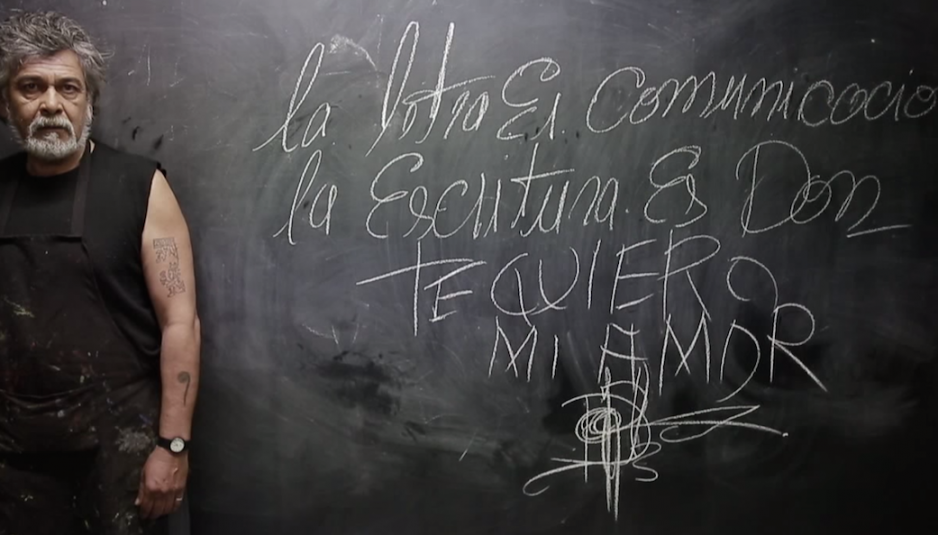 la letra Es Comunicacio
la Escritura Es Don
TE QUIERO
MI AMOR